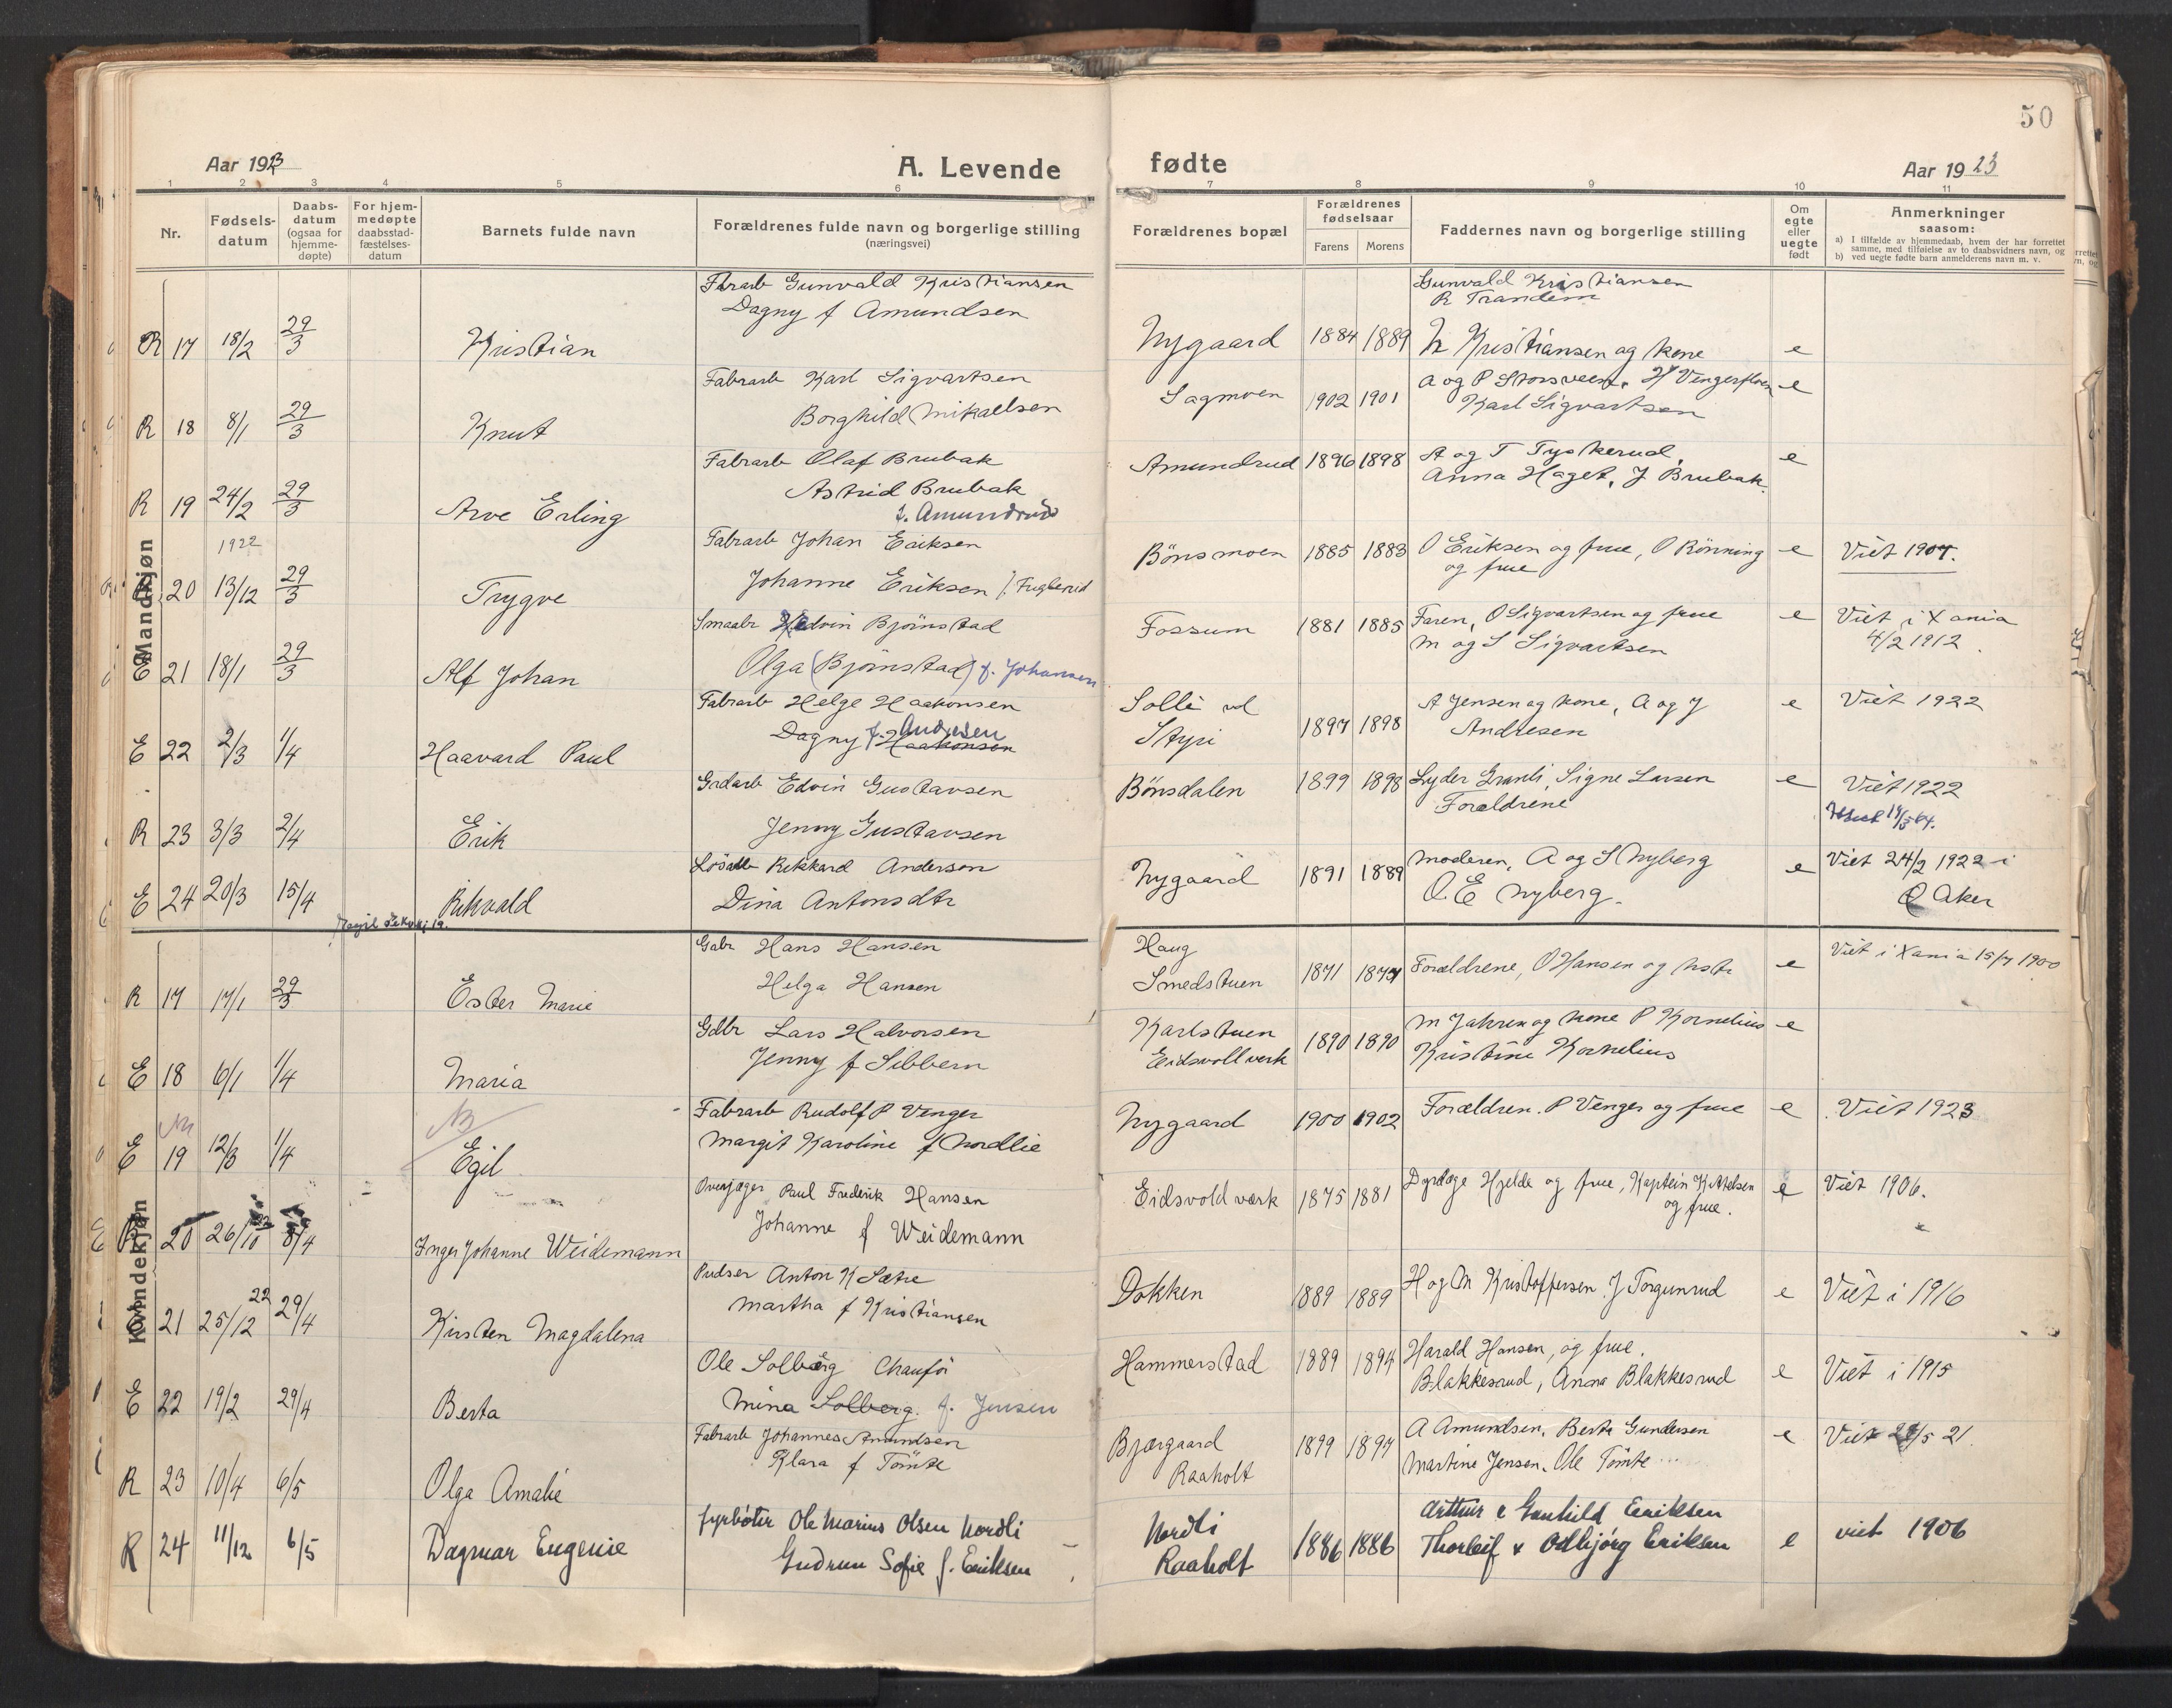 50
Aar 1923
A. Levende
fødte
Aar 1923
1 2 3 4 5 6 7 8 9 10 11
Nr.
Fødsels-
datum
Daabs-
datum
(ogsaa for
hjemme-
døpte)
For hjem-
medøpte
daabsstad-
fæstelses-
datum
Barnets fulde navn
Forældrenes fulde navn og borgerlige stilling
(næringsvei)
Forældrenes bopæl
Forældrenes
fødselsaar
Farens Morens
Faddernes navn og borgerlige stilling
Om
egte
eller
uegte
født
Anmerkninger
saasom:
a) I tilfælde av hjemmedaab, hvem der har forrettet
samme, med tilføielse av to daabsvidners navn, og
b) ved uegte fødte barn anmelderens navn m. v.
Mandkjøn
Fbrarb Gunvald Kristiansen
Dagny f Amundsen
R 17 18/2 29/3 Kristian
Nygaard 1884 1889
Gunvald Kristiansen
R Trandem
H Kristiansen og kone e
Fabrarb Karl Sigvartsen
Borghild Mikaelsen
R 18 8/1 29/3 Knut
Sagmoen 1902 1901
A og P Storsveen, H Vengerfloen e
Karl Sigvartsen
Fabrarb Olaf Brubak
Astrid Brubak
f. Amundrud
R 19 24/2 29/3 Arve Erling
Amundrud 1896 1898
A og T Tyskerud,
Anna Haget, J Brubak. e
Fabrarb Johan Eriksen
Johanne Eriksen f. Fuglerud
1922
20 13/12 29/3 Trygve
Bönsmoen 1885 1883
O Eriksen og frue, O Rönning
og frue e
Viet 1907.
Smaabr Edvin Björnstad
Olga (Björnstad) f. Johansen
E 21 18/1 29/3 Alf Johan
Fossum 1881 1885
Faren, O Sigvartsen og frue
M og S Sigvartsen e
Viet i Xania
4/2 1912.
Fabrarb Helge Haakonsen
Dagny f. Andresen
Haakonsen
E 22 2/3 1/4 Haavard Paul
Solli vd
Styri 1897 1898
A Jensen og kone, A og J
Andresen e
Viet 1922
Grdarb Edvin Gustavsen
Jenny Gustavsen
R 23 3/3 2/4 Erik
Bönsdalen 1899 1898
Lyder Granli, Signe Larsen
Forældrene e
Viet 1922
Lösarb Rikkard Anderson
Dina Antonsdtr
E 24 20/3 15/4 Rikvald
Nygaard 1891 1889
Moderen, A og S Nyberg
O. E Nyberg. e
Viet 24/2 1922 i
Ö Aker
Kvindekjøn
Gabr Hans Hansen
Helga Hansen
R 17 17/1 29/3 Ester Marie
Haug
Smedstuen 1871 1877
Forældrene, O Hansen og hstr e
Viet i Xania 15/7 1900
Gdbr Lars Halvorsen
Jenny f Sibbern
E 18 6/1 1/4 Maria
Karlstuen
Eidsvollverk 1890 1890
M Jahren og kone P Kornelius
Kristine Kornelius e
Fabrarb Rudolf P Venger
Margit Karoline f Nordlie
NB
E 19 12/3 1/4 Egil
Nygaard 1900 1902
Forældren. P Venger og frue e
Viet 1923
Overjæger Paul Frederik Hansen
Johanne f Weidemann
E 20 26/10 22 8/4 Inger Johanne Weidemann
Eidsvold værk 1875 1881
Dyrlæge Hjelde og frue, Kaptein Kittelsen
og frue. e
Viet 1906.
Pudser Anton K Sætre
Martha f Kristiansen
21 25/12 22 29/4 Kirsten Magdalena
Dokken 1889 1889
H og M Kristoffersen. J Torgunrud e
Viet i 1916
Ole Solberg Chauför
Mina Solberg. f. Jensen
E 22 19/2 29/4 Berta
Hammerstad 1889 1894
Harald Hansen, og frue.
Blakkesrud, Anna Blakkesrud e
Viet i 1915
Fabrarb Johannes Amundsen
Klara f Tömte
R 23 10/4 6/5 Olga Amalie
Bjørgaard
Raaholt 1899 1897
A Amundsen, Berte Gundersen
Martine Jensen, Ole Tömte e
Viet 28/5 21.
fyrböter Ole Marius Olsen Nordli
Gudrun Sofie f. Eriksen
R 24 11/12 6/5 Dagmar Eugenie
Nordli
Raaholt 1886 1886
Arthur & Gunhild Eriksen
Thorleif & Odbjörg Eriksen e
viet 1906